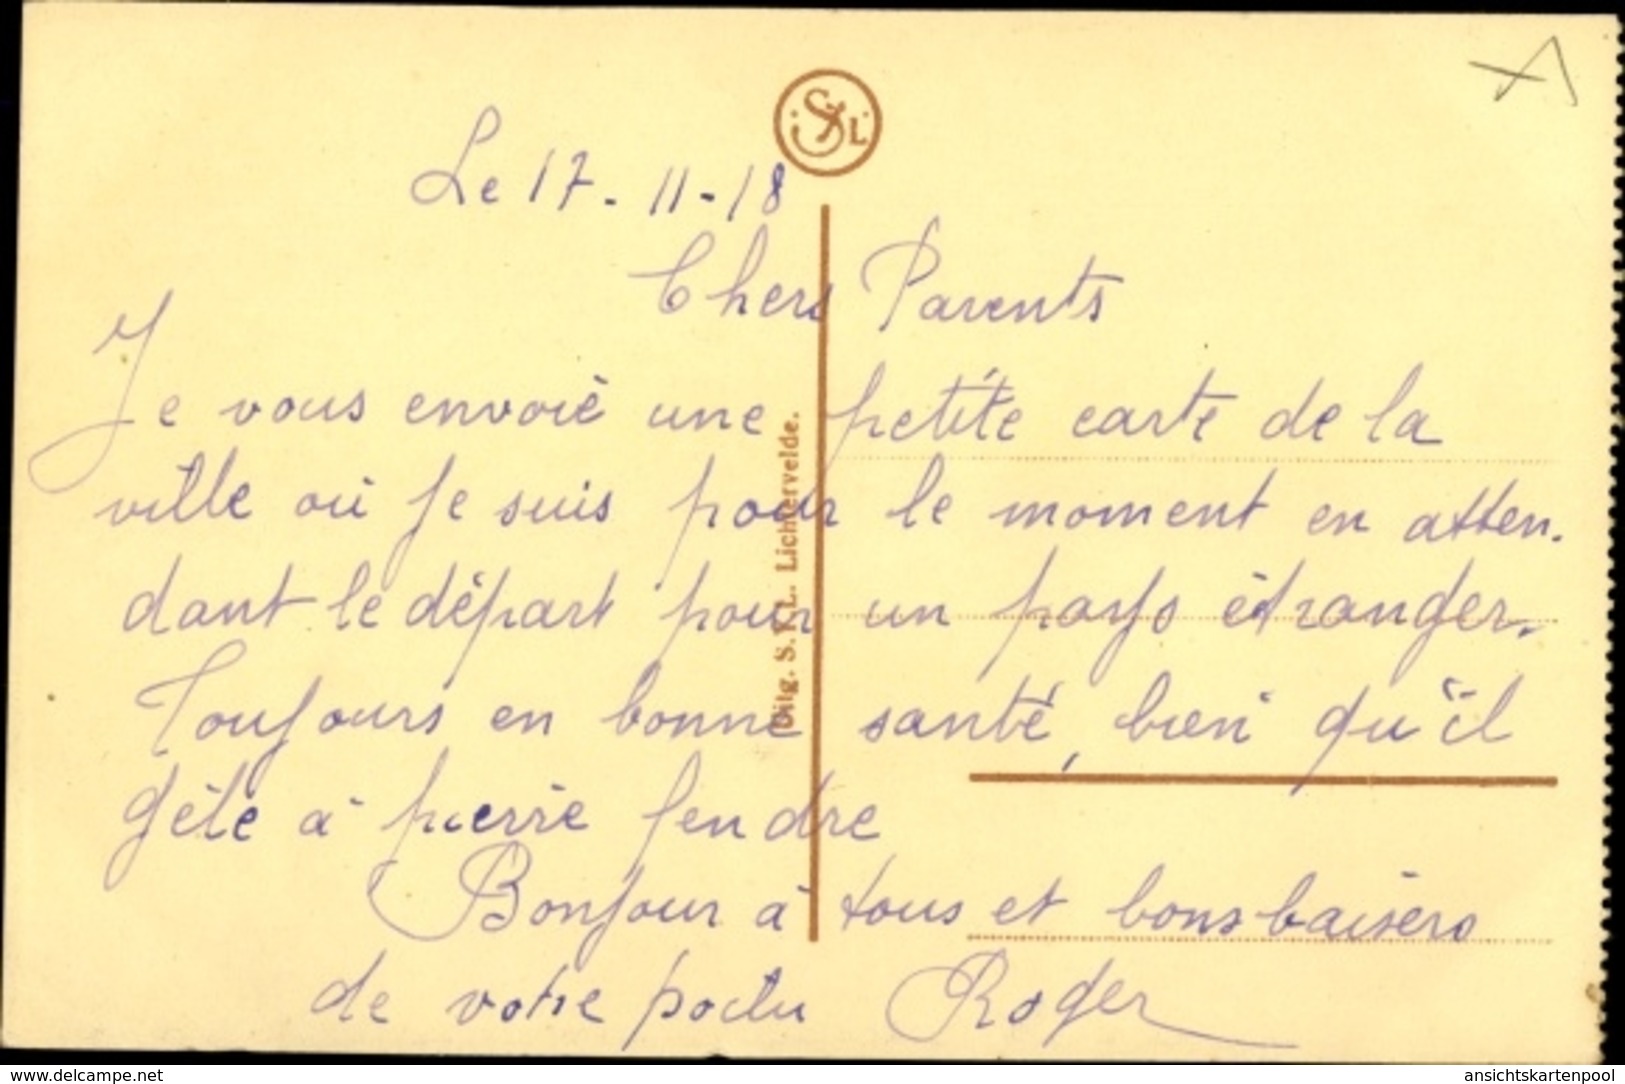 Le 17-11-18
Chers Parents
Je vous envoie une petite carte de la
ville où je suis pour le moment en atten-
dant le départ pour un pays étranger.
Toujours en bonne santé, bien qu'il
gèle à pierre fendre
Bonjour à tous et bons baisers
de votre poilu Roger
Uitg. S.I.L. Lichtervelde.
S.I.L.
www.delcampe.net
ansichtskartenpool